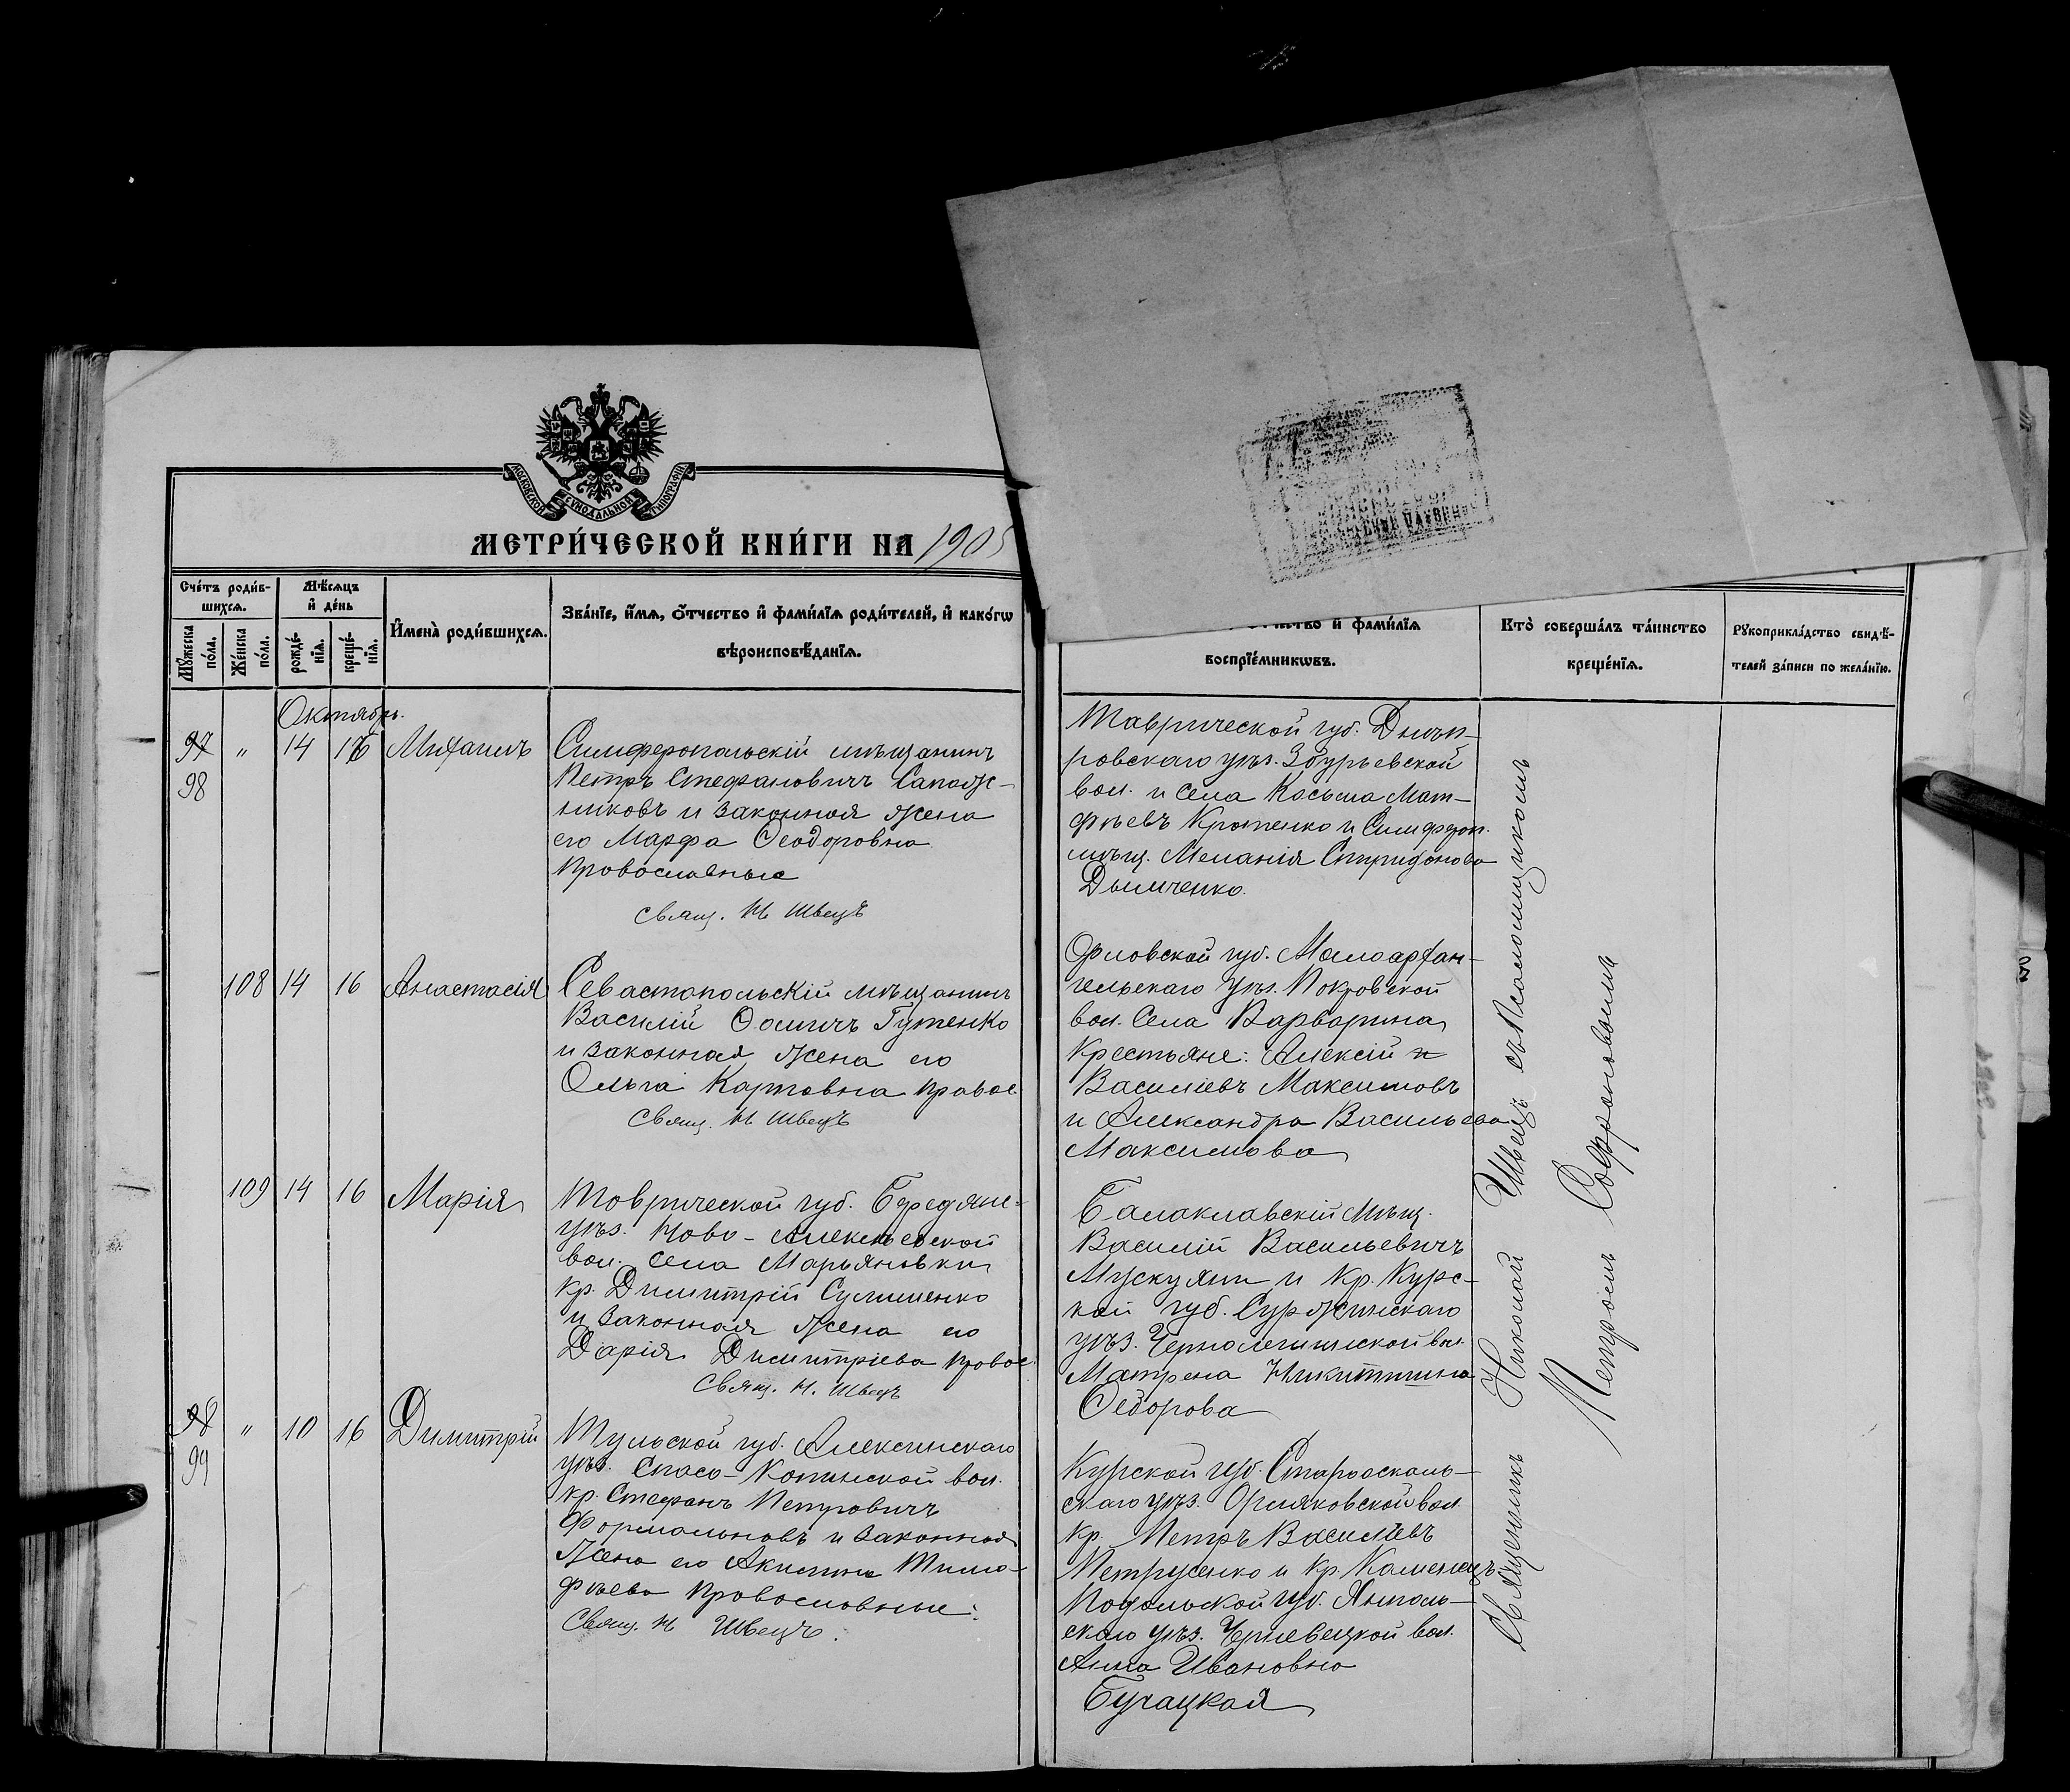 МОСКОВСКОЙ СѴНОДАЛЬНОЙ ТИПОГРАФІИ
МЕТРИ́ЧЕСКОЙ КНИ́ГИ НА 1905
Сче́тъ роди́в-
шихсѧ.
Мѣ́сѧцъ
и҆ де́нь
Мꙋ́жеска
по́ла.
Же́нска
по́ла.
рожде́-
нїѧ.
креще́-
нїѧ.
И҆мена̀ роди́вшихсѧ.
Зва́нїе, и҆́мѧ, ѻ҆́тчество и҆ фами́лїѧ роди́телей, и҆ како́гѡ
вѣроисповѣ́данїѧ.
и҆ фами́лїѧ
воспрїе́мникѡвъ.
Кто̀ соверша́лъ та́инство
креще́нїѧ.
Рꙋкоприкла́дство свидѣ́-
телей за́писи по жела́нїю.
Октябрь.
97 " 14 16 Михаилъ
98
Симферопольскій мѣщанинъ
Петръ Стефановичъ Сапож-
никовъ и законная жена
его Марфа Ѳеодоровна
православные
Свящ. Н Швецъ
Таврической губ. Днѣп-
ровскаго уѣз. Збурьевской
вол. и села Косьма Мат-
фѣевъ Кротенко и Симфероп.
мѣщ. Меланія Спиридонова
Дымченко.
108 14 16 Анастасія
Севастопольскій мѣщанинъ
Василій Ѳомичъ Гутенко
и законная жена его
Ольга Карповна правос
Свящ. Н Швецъ
Орловской губ. Малоархан-
гельскаго уѣз. Покровской
вол. Села Варварина
крестьяне: Алексій и
Василіевъ Максимовъ
и Александра Васильева
Максимова
109 14 16 Марія
Таврической губ. Бердянс-
уѣз. Ново-Алексѣевской
вол. села Марьяновки
кр. Димитрій Сулименко
и законная жена его
Дарія Димитріева правос.
Свящ. Н. Швецъ
Балаклавскій Мѣщ.
Василій Васильевичъ
Мускуди и кр. Курс-
кой губ. Суржинскаго
уѣз. вол.
Матрена Никитична
Ѳедорова
98 " 10 16 Димитрій
99
Тульской губ. Алексинскаго
уѣз. Спасо-Конинской вол.
кр. Стефанъ Петровичъ
и законная
жена его Акилина Тимо-
фѣева православные.
Свящ. Н Швецъ.
Курской губ. Старооскол-
скаго уѣз. Орликовской вол.
кр. Петръ Василіевъ
Петрусенко и кр. Каменецъ
Подольской губ. Ямполь-
скаго уѣз. Чернѣвецкой вол.
Анна Ивановна
Бучацкая
Священникъ Николай Швецъ съ Псаломщикомъ
Петромъ Софроновымъ